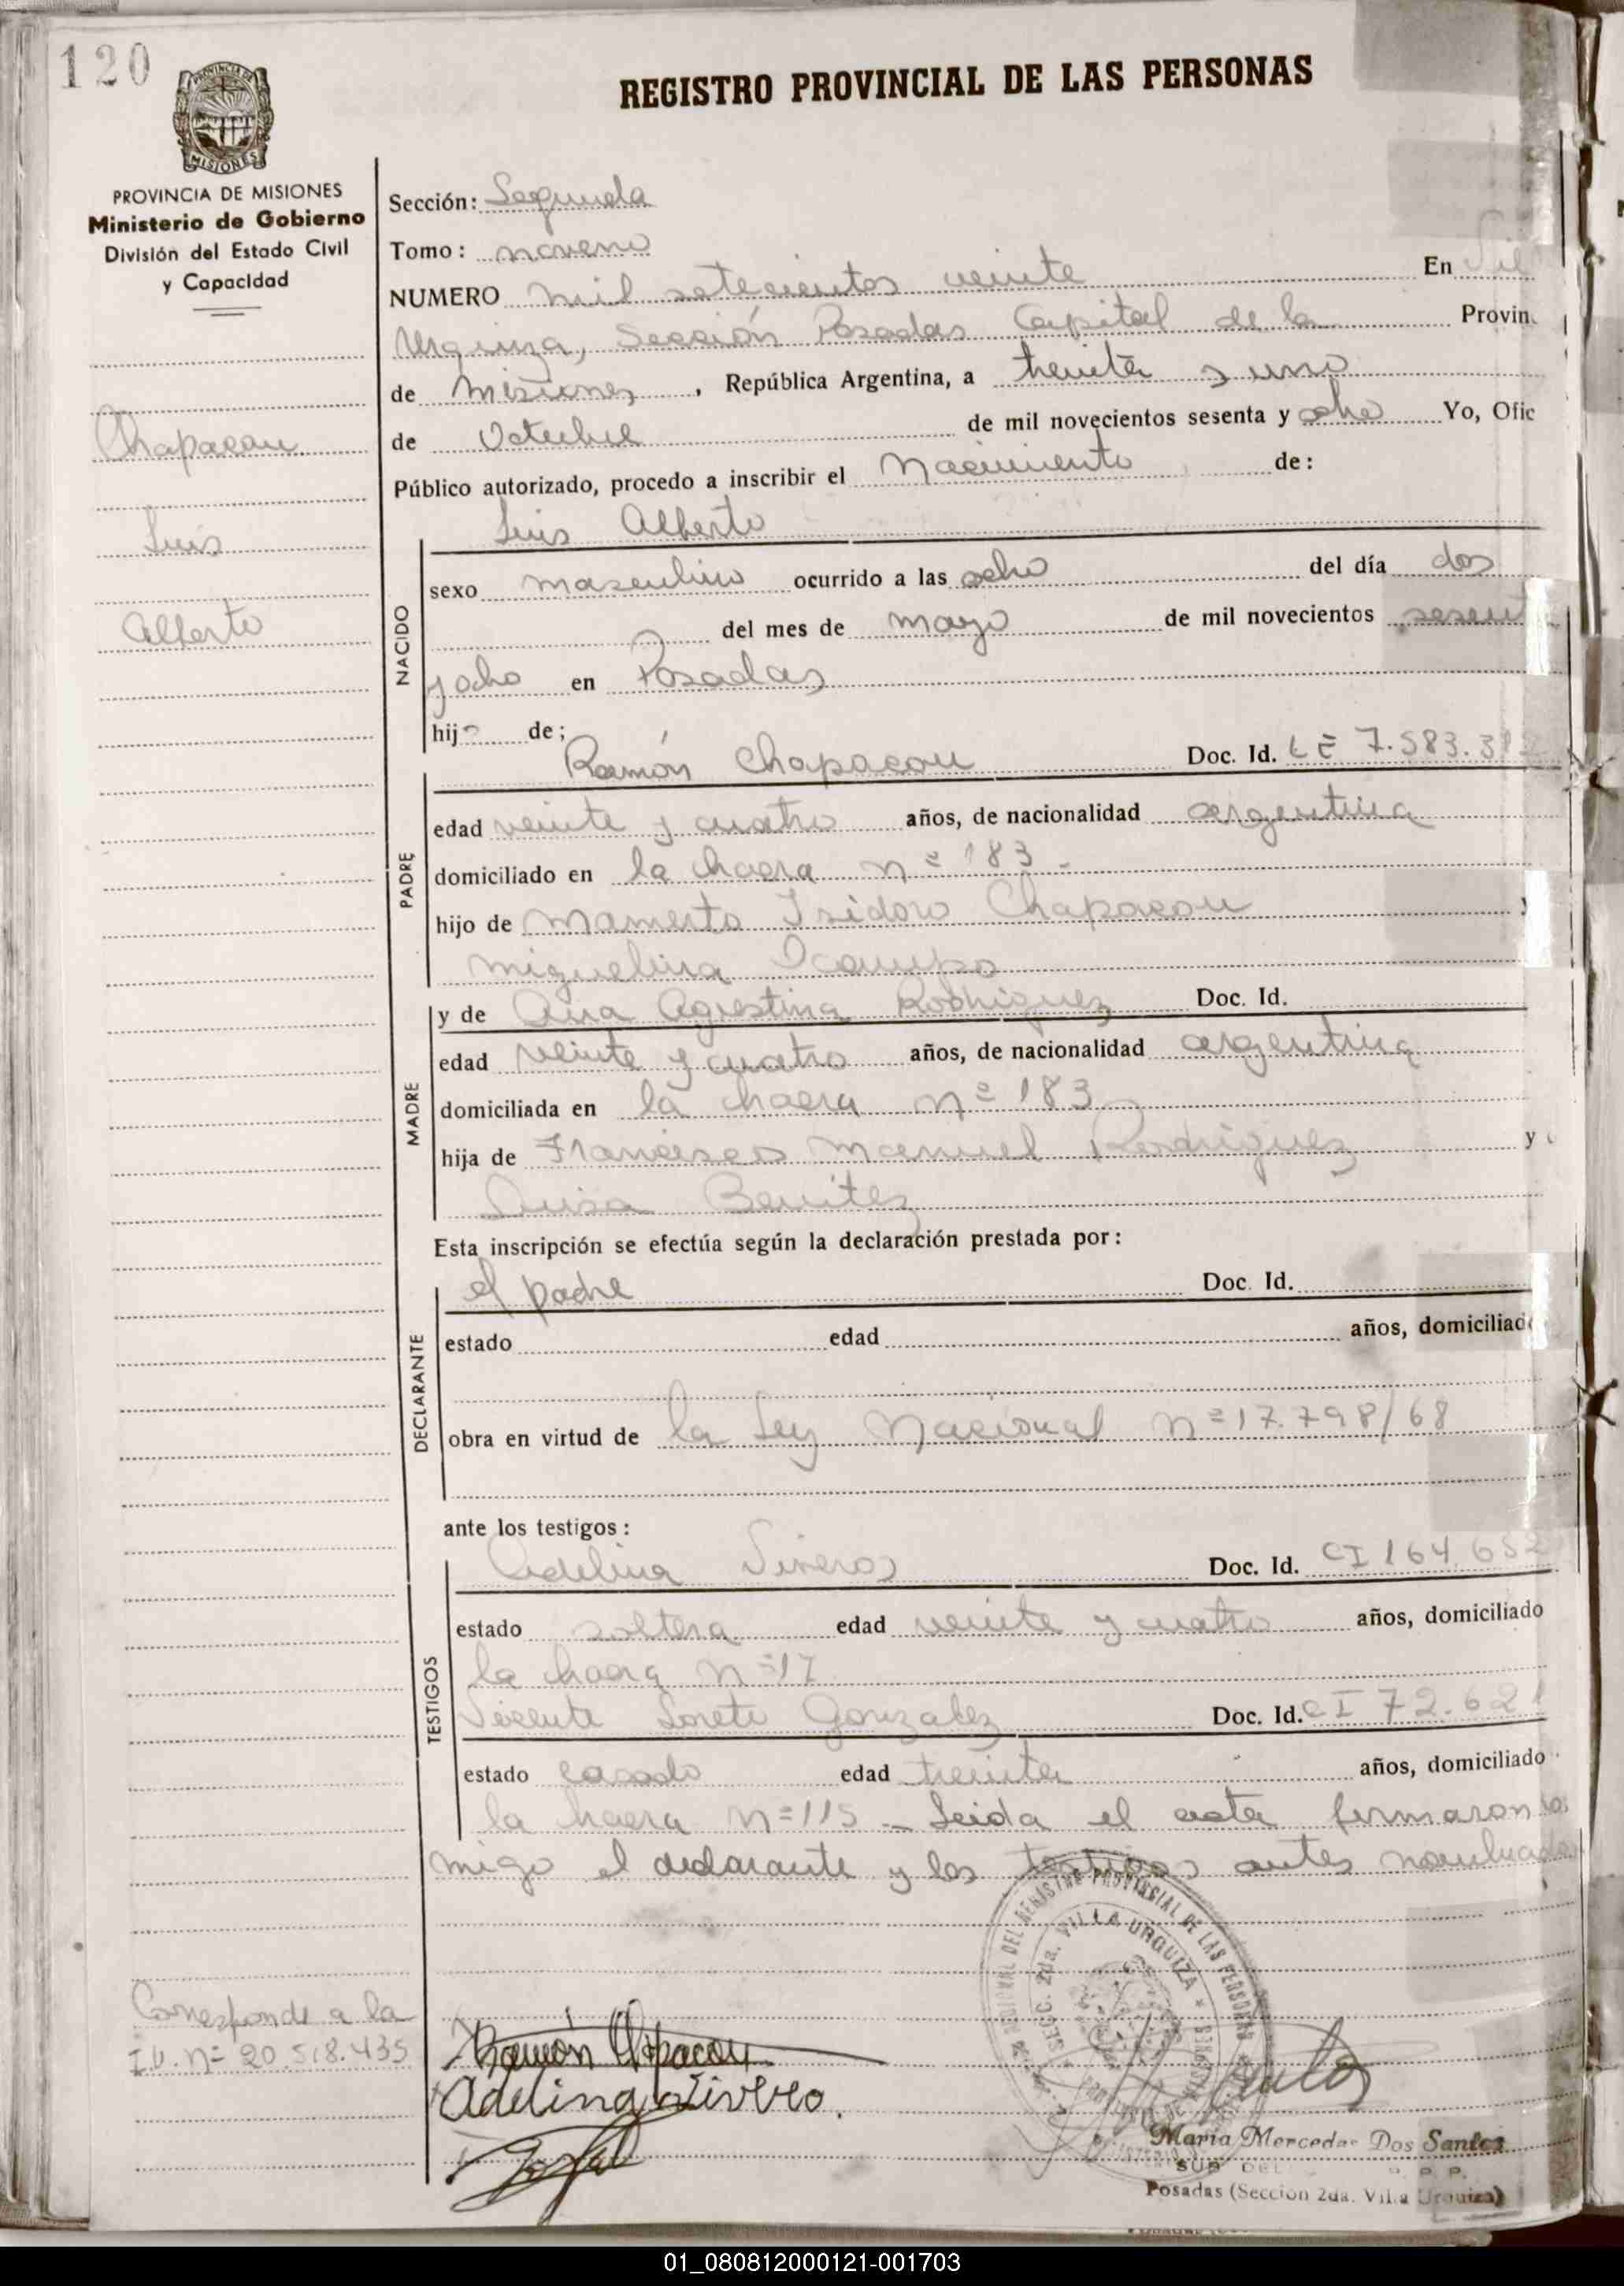 120
REGISTRO PROVINCIAL DE LAS PERSONAS
PROVINCIA DE MISIONES
Ministerio de Gobierno
División del Estado Civil
y Capacidad
Sección: Segunda
Tomo: noveno
NUMERO mil setecientos veinte En Vil
Urquiza, Sección Posadas Capital de la Provin
de Misiones, República Argentina, a treinta y uno
de Octubre de mil novecientos sesenta y ocho Yo, Ofic
Público autorizado, procedo a inscribir el Nacimiento de:
Chapacou
Luis
Alberto
Luis Alberto
NACIDO
sexo masculino ocurrido a las ocho del día dos
del mes de mayo de mil novecientos sesent
y ocho en Posadas
hijo de;
Ramón Chapacou Doc. Id. LE 7.583.312
PADRE
edad veinte y cuatro años, de nacionalidad argentina
domiciliado en la chacra nº 183-
hijo de Mamerto Isidoro Chapacou y
Miguelina Ocampo
MADRE
y de Ana Agustina Rodriguez Doc. Id.
edad veinte y cuatro años, de nacionalidad argentina
domiciliada en la chacra nº 183
hija de Francisco Manuel Rodriguez y
Luisa Benitez
Esta inscripción se efectúa según la declaración prestada por:
el padre Doc. Id.
DECLARANTE
estado edad años, domiciliado
obra en virtud de la Ley Nacional nº 17.798/68
ante los testigos:
Adelina Doc. Id. CI 164.652
TESTIGOS
estado soltera edad veinte y cuatro años, domiciliado
la chacra nº 17
Vicente Loreto Gonzalez Doc. Id. CI 72.621
estado casado edad treinta años, domiciliado
la chacra nº 115 - Leida el acta firmaron co
migo el declarante y los testigos antes nombrados
Corresponde a la
I.D. nº 20.518.435
Ramón Chapacou
Adelina Vivero.
DEL REGISTRO PROVINCIAL DE LAS PERSONAS
SECC. 2da. VILLA URQUIZA
María Mercedes Dos Santos
SUB DEL
Posadas (Seccion 2da. Villa Urquiza)
01_080812000121-001703